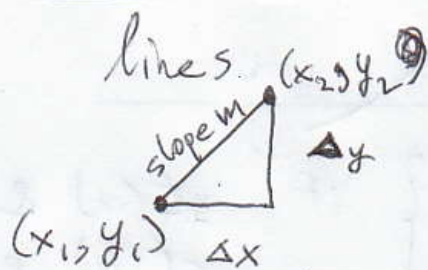 lines
(x₂, y₂)
slope m
Δy
(x₁, y₁)
Δx